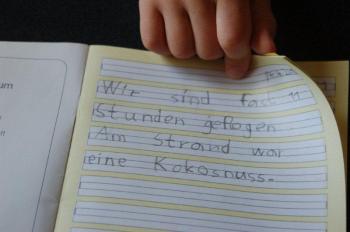 Wir sind fast 11
Stunden geflogen
Am Strand war
eine Kokosnuss.
um